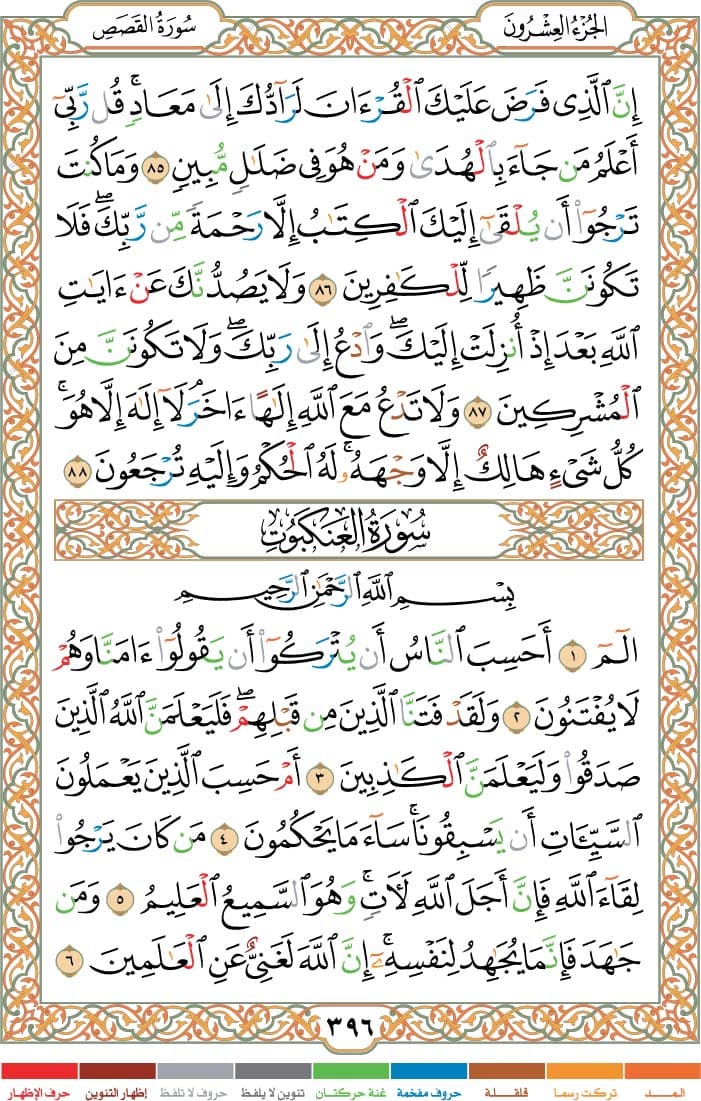 الجُزْءُ العِشْرُونَ
سُورَةُ القَصَصِ
إِنَّ ٱلَّذِى فَرَضَ عَلَيْكَ ٱلْقُرْءَانَ لَرَآدُّكَ إِلَىٰ مَعَادٍۚ قُل رَّبِّىٓ
أَعْلَمُ مَن جَآءَ بِٱلْهُدَىٰ وَمَنْ هُوَ فِى ضَلَـٰلٍ مُّبِينٍ ٨٥ وَمَا كُنتَ
تَرْجُوٓا۟ أَن يُلْقَىٰٓ إِلَيْكَ ٱلْكِتَـٰبُ إِلَّا رَحْمَةً مِّن رَّبِّكَۖ فَلَا
تَكُونَنَّ ظَهِيرًا لِّلْكَـٰفِرِينَ ٨٦ وَلَا يَصُدُّنَّكَ عَنْ ءَايَـٰتِ
ٱللَّهِ بَعْدَ إِذْ أُنزِلَتْ إِلَيْكَۖ وَٱدْعُ إِلَىٰ رَبِّكَۖ وَلَا تَكُونَنَّ مِنَ
ٱلْمُشْرِكِينَ ٨٧ وَلَا تَدْعُ مَعَ ٱللَّهِ إِلَـٰهًا ءَاخَرَۘ لَآ إِلَـٰهَ إِلَّا هُوَۚ
كُلُّ شَىْءٍ هَالِكٌ إِلَّا وَجْهَهُۥۚ لَهُ ٱلْحُكْمُ وَإِلَيْهِ تُرْجَعُونَ ٨٨
سُورَةُ العَنكَبُوتِ
بِسْمِ ٱللَّهِ ٱلرَّحْمَـٰنِ ٱلرَّحِيمِ
الٓمٓ ١ أَحَسِبَ ٱلنَّاسُ أَن يُتْرَكُوٓا۟ أَن يَقُولُوٓا۟ ءَامَنَّا وَهُمْ
لَا يُفْتَنُونَ ٢ وَلَقَدْ فَتَنَّا ٱلَّذِينَ مِن قَبْلِهِمْۖ فَلَيَعْلَمَنَّ ٱللَّهُ ٱلَّذِينَ
صَدَقُوا۟ وَلَيَعْلَمَنَّ ٱلْكَـٰذِبِينَ ٣ أَمْ حَسِبَ ٱلَّذِينَ يَعْمَلُونَ
ٱلسَّيِّـَٔاتِ أَن يَسْبِقُونَاۚ سَآءَ مَا يَحْكُمُونَ ٤ مَن كَانَ يَرْجُوا۟
لِقَآءَ ٱللَّهِ فَإِنَّ أَجَلَ ٱللَّهِ لَـَٔاتٍۚ وَهُوَ ٱلسَّمِيعُ ٱلْعَلِيمُ ٥ وَمَن
جَـٰهَدَ فَإِنَّمَا يُجَـٰهِدُ لِنَفْسِهِۦٓۚ إِنَّ ٱللَّهَ لَغَنِىٌّ عَنِ ٱلْعَـٰلَمِينَ ٦
٣٩٦
المــــد تركت رسما قلقـــلة حروف مفخمة غنة حركتـان تنوين لا يلفظ حروف لا تلفظ إظهار التنوين حرف الإظهار